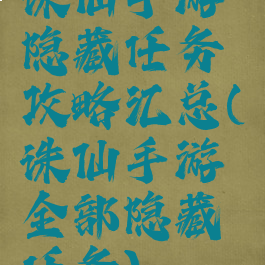 诛仙手游
隐藏任务
攻略汇总(
诛仙手游
全部隐藏
任务)